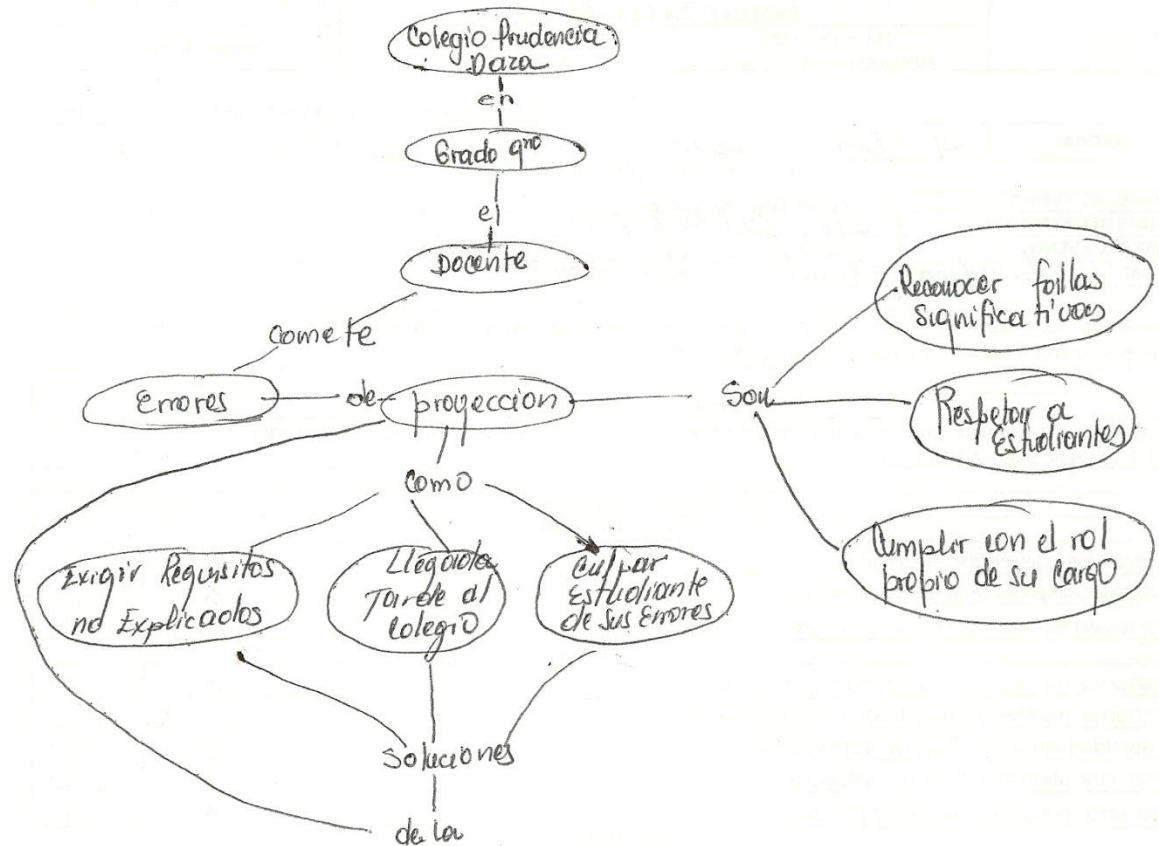 Colegio Prudencia
Daza
en
Grado 9no
el
Docente
comete
Errores
de
proyeccion
Son
Reconocer fallas
significativas
Respetar a
Estudiantes
Cumplir con el rol
propio de su Cargo
Como
Exigir Requisitos
no Explicados
Llegada
Tarde al
Colegio
Culpar
Estudiante
de sus Errores
Soluciones
de la